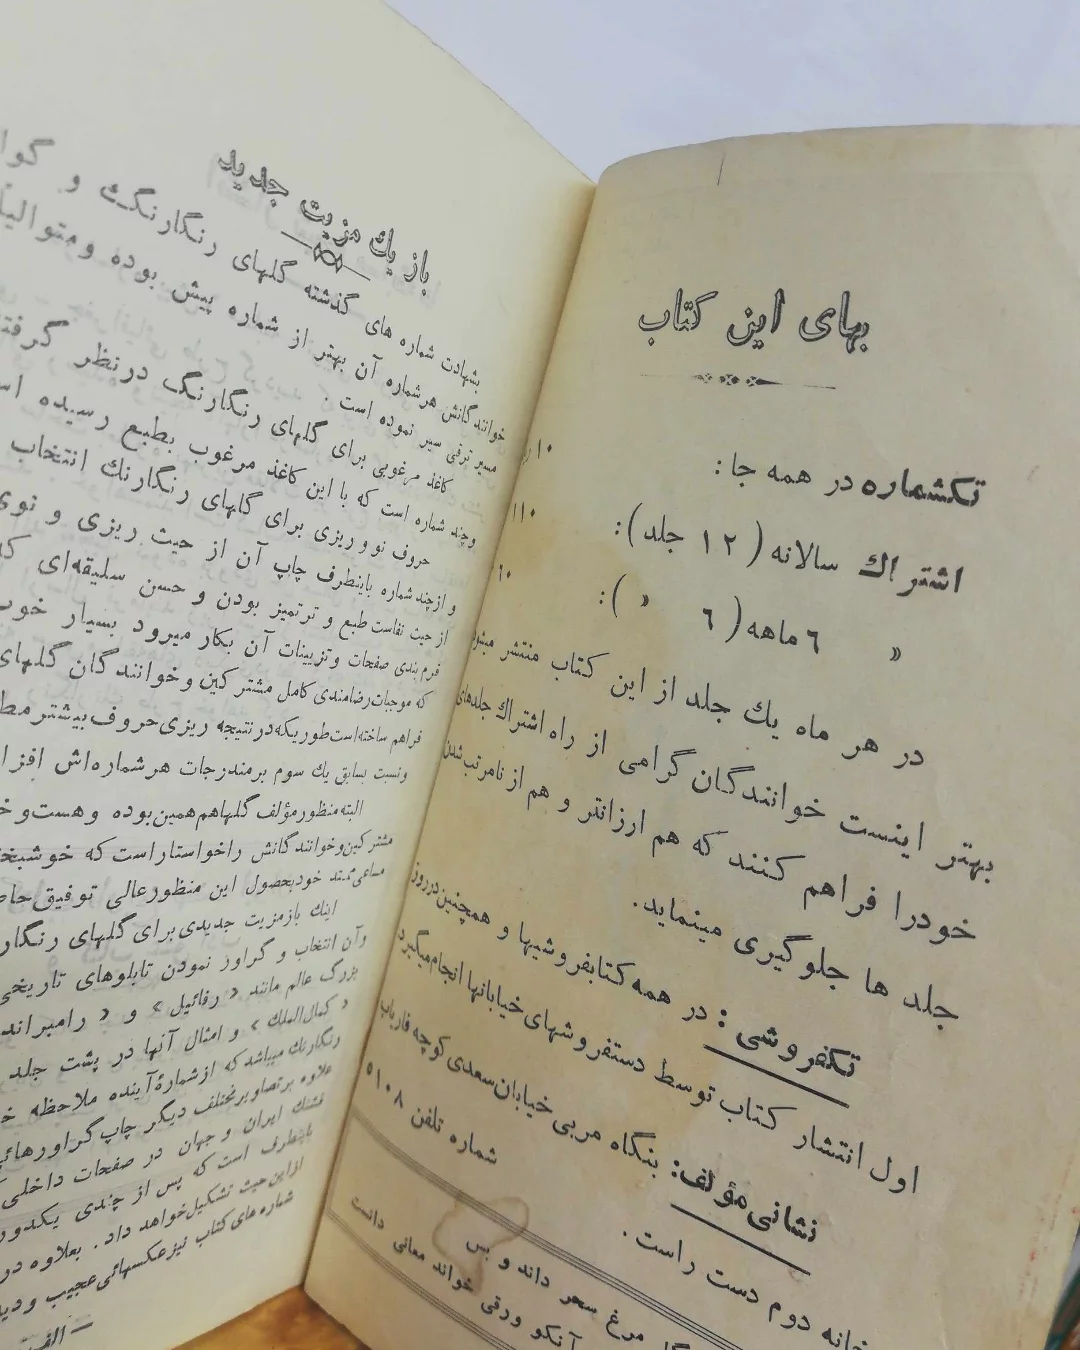 بهای این کتاب
تکشماره در همه جا: ۱۰
اشتراك سالانه (۱۲ جلد): ۱۱۰
» ۶ ماهه (۶ »): ۶۰
در هر ماه یك جلد از این کتاب منتشر میشود
بهتر اینست خوانندگان گرامی از راه اشتراك جلدهای
خودرا فراهم کنند که هم ارزانتر و هم از نامرتب شدن
جلد ها جلوگیری مینماید.
تکفروشی: در همه کتابفروشیها و همچنین در روز
اول انتشار کتاب توسط دستفروشهای خیابانها انجام میگیرد
نشانی مؤلف: بنگاه مربی خیابان سعدی کوچه فاریاب
خانه دوم دست راست. شماره تلفن ۵۱۰۸
مرغ سحر داند و بس
آنکو ورقی خواند معانی دانست
باز یك مزیت جدید
بشهادت شماره های گذشته گلهای رنگارنگ و
خوانندگانش هرشماره آن بهتر از شماره پیش بوده ومتوالیاً
مسیر ترقی سیر نموده است.
کاغذ مرغوبی برای گلهای رنگارنگ درنظر
وچند شماره است که با این کاغذ مرغوب بطبع رسیده
حروف نو و ریزی برای گلهای رنگارنك انتخاب
و از چند شماره باینطرف چاپ آن از حیث ریزی و نوی
از حیث نفاست طبع و تر تمیز بودن و حسن سلیقه‌ای که
فرم بندی صفحات وتزیینات آن بکار میرود بسیار
که موجبات رضامندی کامل مشترکین و خوانندگان گلهای
فراهم ساخته است طوریکه در نتیجه ریزی حروف بیشتر
ونسبت بسابق یك سوم برمندرجات هرشماره‌اش
البته منظور مؤلف گلها هم همین بوده وهست و
مشترکین وخوانندگانش راخواستار است که
خود بحصول این منظورعالی توفیق
اینك باز مزیت جدیدی برای گلهای
وآن انتخاب و گراور نمودن تابلوهای تاریخی
بزرگ عالم مانند «رفائیل» و
«کمال‌الملك» و امثال آنها در پشت جلد
رنگارنك میباشد که از شمارهٔ آینده ملاحظه
علاوه بر تصاویر مختلف دیگر چاپ گراورهائی
قشنك ایران و جهان در صفحات داخلی
باینطرف است که پس از چندی
از این حیث تشکیل خواهد داد. بعلاوه در
شماره های کتاب نیز عکسهائی عجیب و
— الف